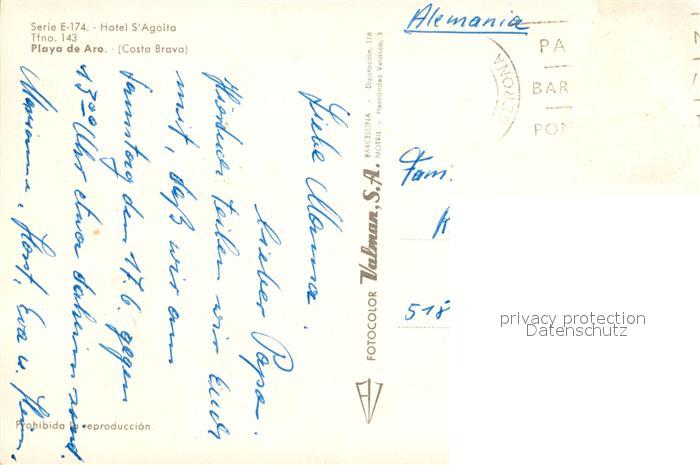 Serie E-174. - Hotel S'Agoita
Tfno. 143
Playa de Aro. - (Costa Brava)
Liebe Mama.
lieber Papa.
Hierdurch teilen wir Euch
mit, daß wir am
Samstag den 17.6. gegen
1300 Uhr etwa daheim sind.
Marianne, Horst, Eva u. Hein.
Prohibida la reproducción
FOTOCOLOR Valman, S.A. BARCELONA - Diputación, 118
MOTRIL - Hernández Velasco, 3
Alemania
GERONA
PA
BAR
PON
Fam.
K
518
privacy protection
Datenschutz